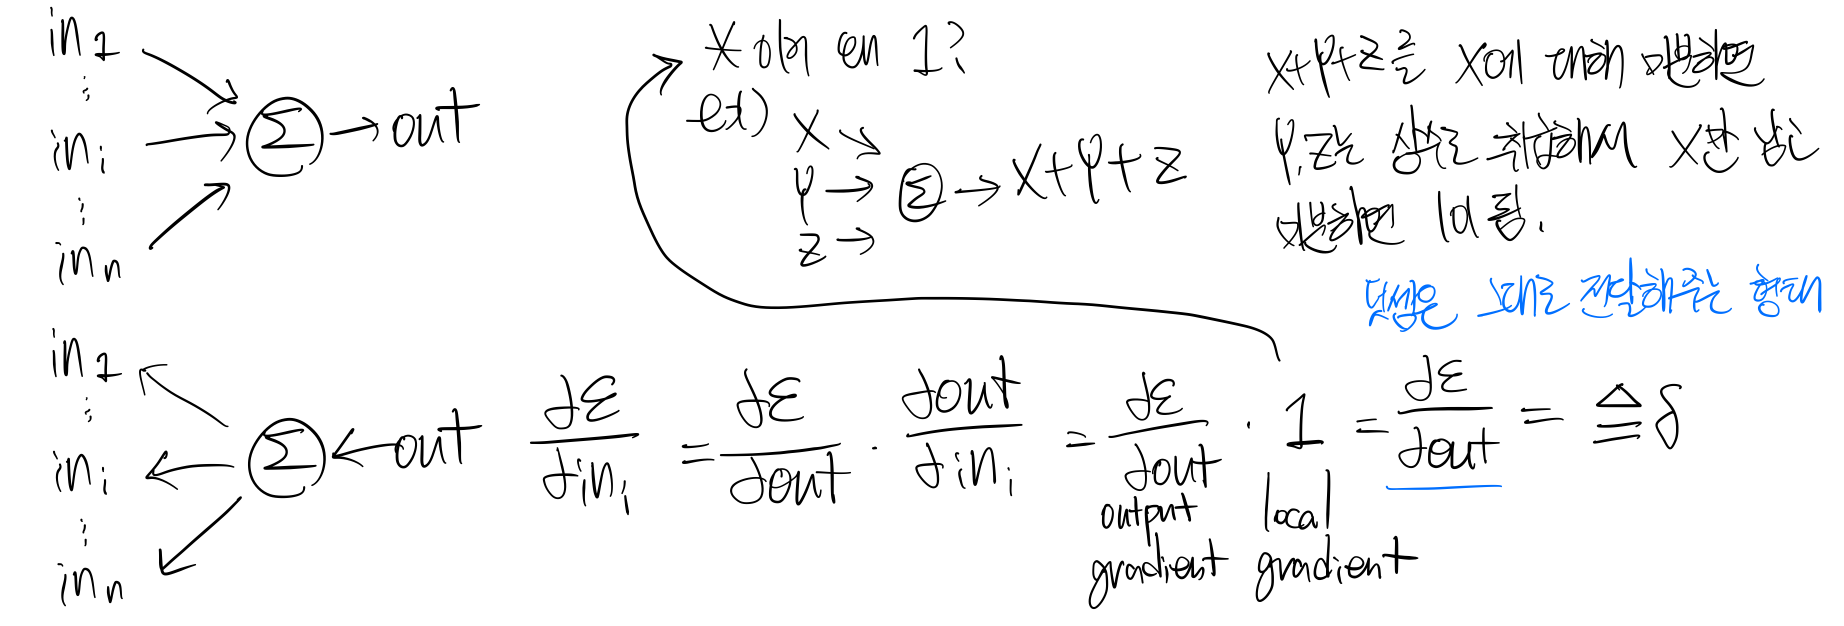 in₁
⋮
inᵢ → Σ → out
⋮
inₙ
* 어째 en 1?
ex) x
y → Σ → x+y+z
z →
x+y+z를 x에 대해 미분하면
y,z는 상수로 취급해서 x만 남고
미분하면 1이 됨.
덧셈은 그대로 전달해주는 형태
in₁
⋮
inᵢ ← Σ ← out
⋮
inₙ
∂ε/∂inᵢ = ∂ε/∂out · ∂out/∂inᵢ = ∂ε/∂out · 1 = ∂ε/∂out = ≜ δ
output gradient
local gradient